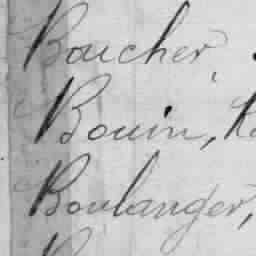 Boucher,
Bouin,
Boulanger,